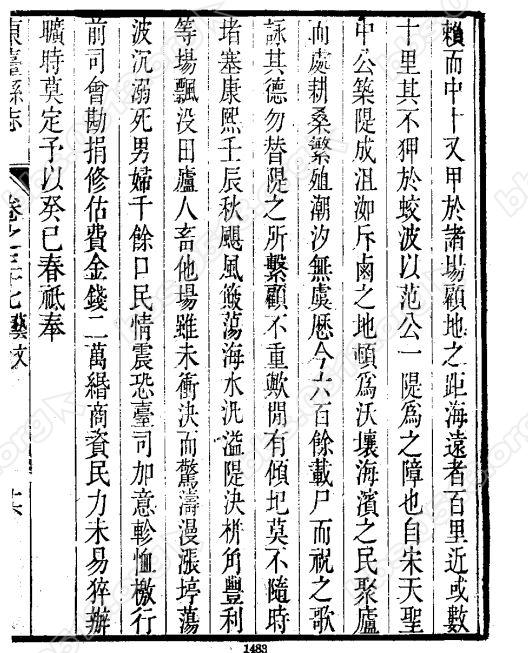 賴而中十又甲於諸場顧地之距海遠者百里近或數
十里其不狎於蛟波以范公一隄爲之障也自宋天聖
中公築隄成沮洳斥鹵之地頓爲沃壤海濱之民聚廬
而處耕桑繁殖潮汐無虞歷今六百餘載尸而祝之歌
詠其德勿替隄之所繫顧不重歟閒有傾圮莫不隨時
堵塞康熙壬辰秋颶風簸蕩海水汎溢隄決栟角豐利
等場飄没田廬人畜他場雖未衝決而驚濤漫漲渟蕩
波沉溺死男婦千餘口民情震恐臺司加意軫恤檄行
前司會勘捐修估費金錢二萬緡商資民力未易猝辦
曠時莫定予以癸巳春祗奉
東臺縣志 卷之三十七藝文
1483